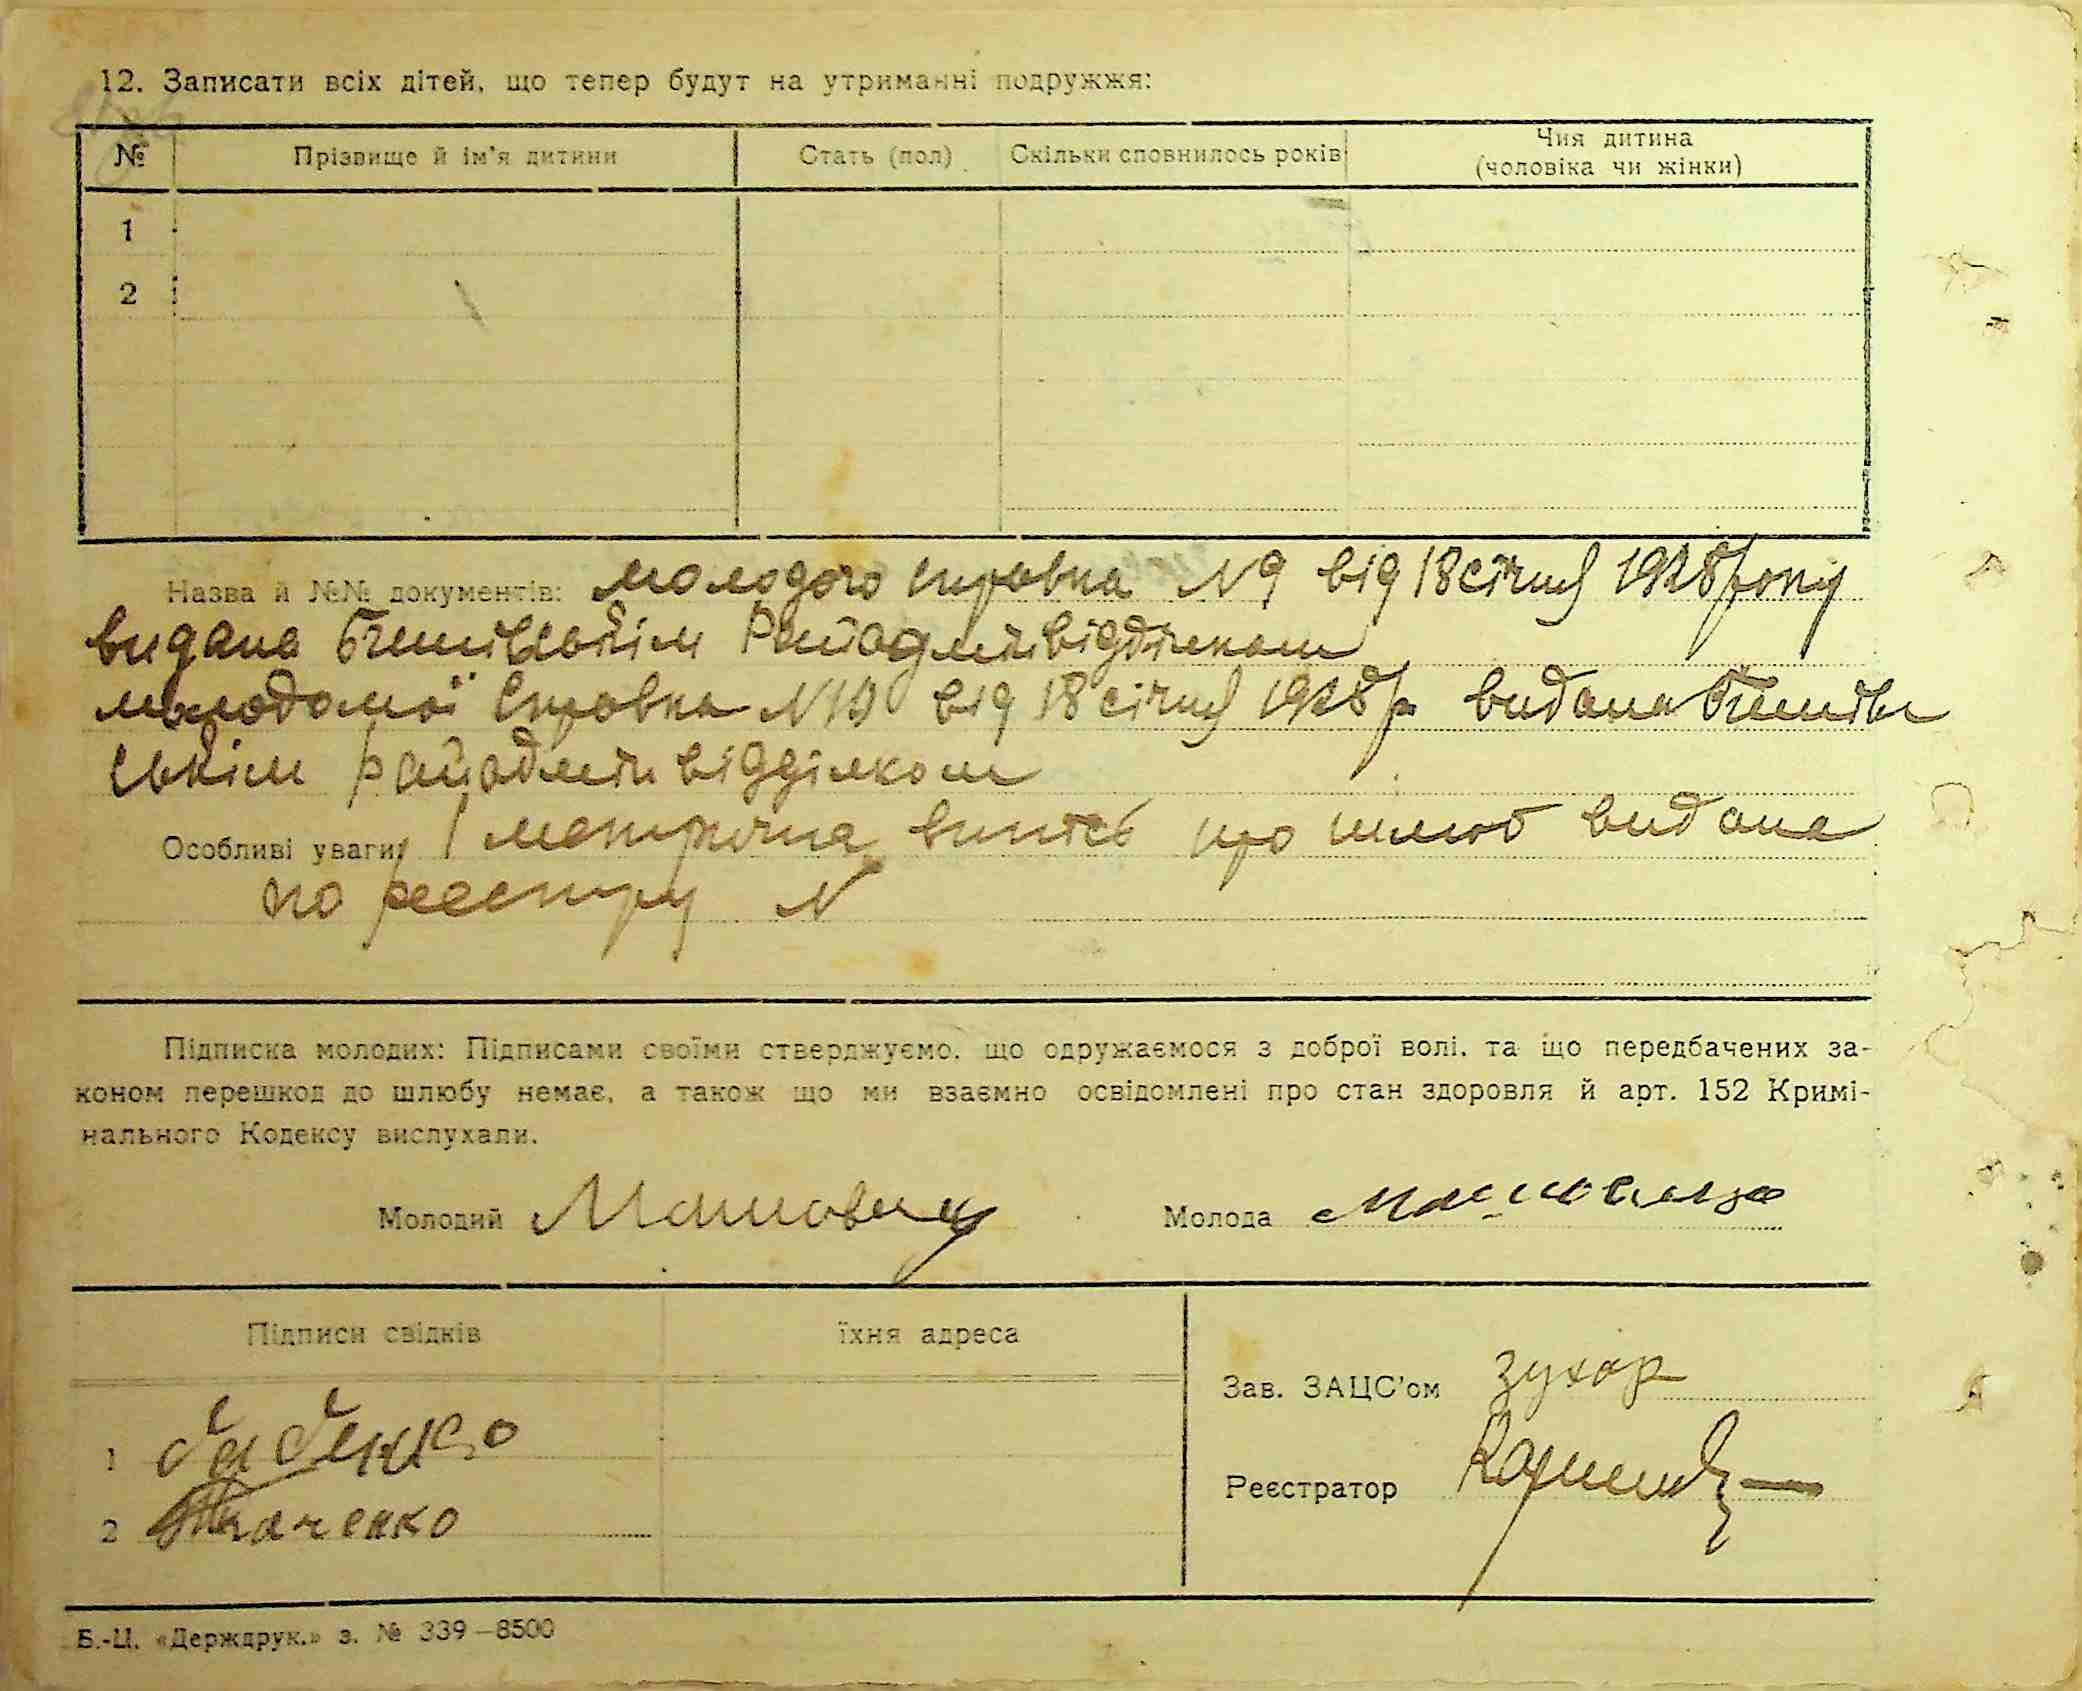 12. Записати всіх дітей, що тепер будут на утриманні подружжя:
№ Прізвище й ім'я дитини Стать (пол) Скільки сповнилось років Чия дитина (чоловіка чи жінки)
1
2
Назва й №№ документів: молодого справка N9 від 18 січня 1928 року
видана райадмінвідділком
молодої Справка N10 від 18 січня 1928 р видана
ським райадмінвідділком
Особливі уваги: метрична випись про шлюб видана
по реєстру N
Підписка молодих: Підписами своїми стверджуємо, що одружаємося з доброї волі, та що передбачених за-
коном перешкод до шлюбу немає, а також що ми взаємно освідомлені про стан здоровля й арт. 152 Кримі-
нального Кодексу вислухали.
Молодий Молода
Підписи свідків їхня адреса
Зав. ЗАЦС'ом Зухар
1 Бабенко
Реєстратор
2 Ткаченко
Б.-Ц. «Держдрук.» з. № 339—8500